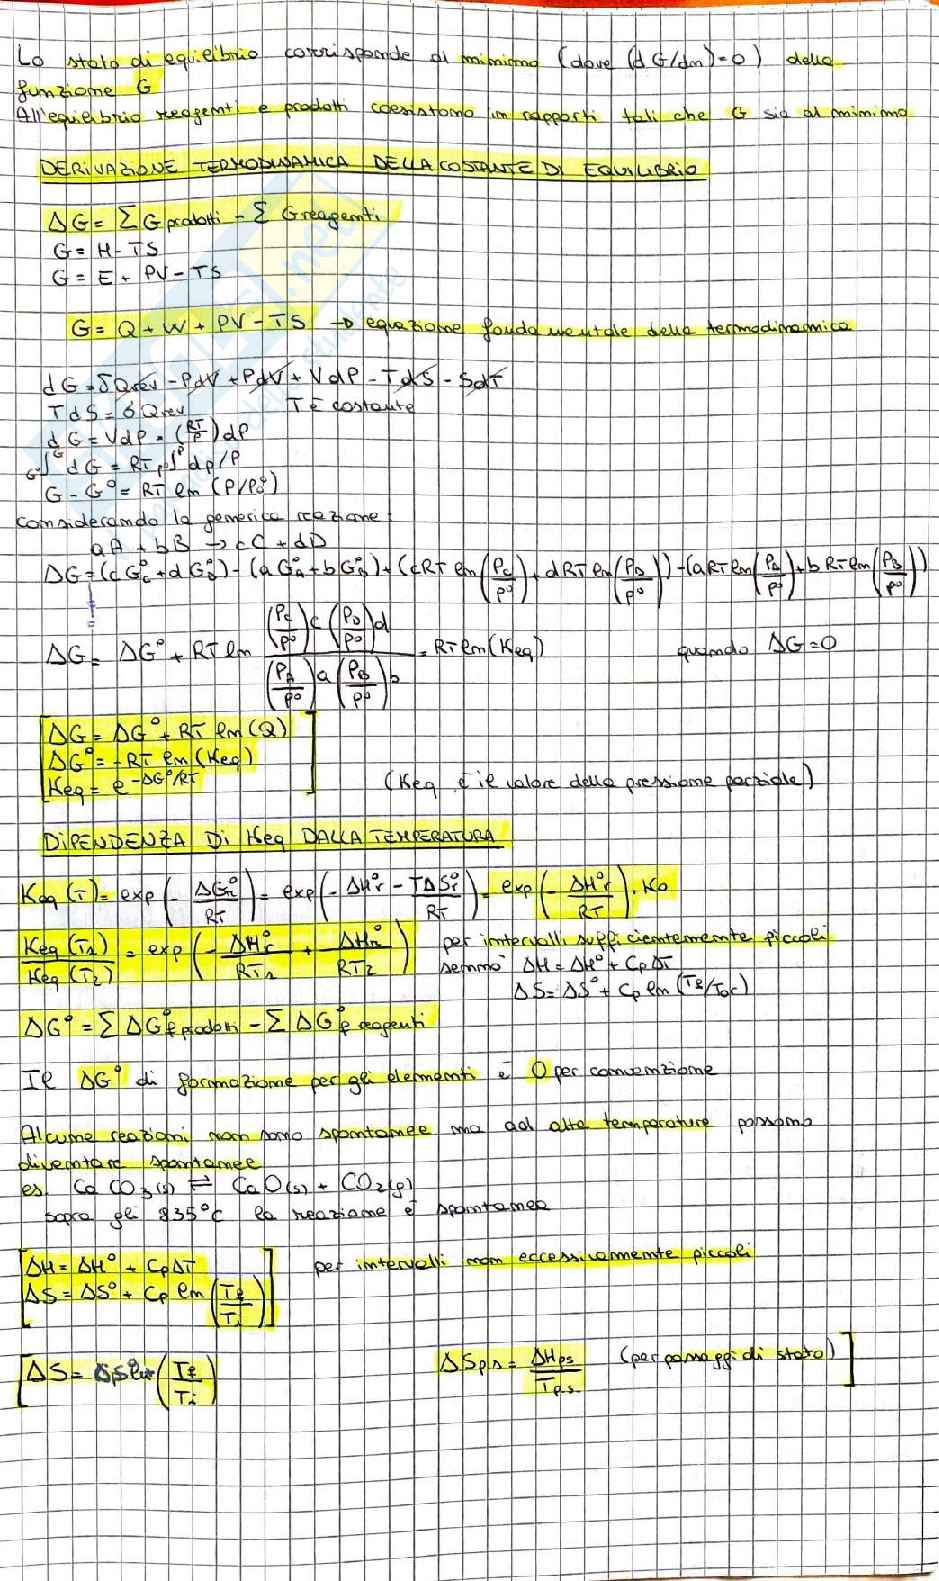 Lo stato di equilibrio corrisponde al minimo (dove (dG/dn)=0) della
funzione G
All'equilibrio reagenti e prodotti coesistono in rapporti tali che G sia al minimo
DERIVAZIONE TERMODINAMICA DELLA COSTANTE DI EQUILIBRIO
ΔG = Σ G prodotti - Σ G reagenti
G = H - TS
G = E + PV - TS
G = Q + W + PV - TS → equazione fondamentale della termodinamica
dG = δQrev - PdV + PdV + VdP - TdS - SdT
TdS = δQrev T è costante
dG = VdP = (RT/P) dP
G°∫^G dG = RT P°∫^P dp/P
G - G° = RT ln (P/P°)
Considerando la generica reazione:
aA + bB → cC + dD
ΔG = (cG°c + dG°D) - (aG°a + bG°B) + (cRT ln(Pc/P°) + dRT ln(PD/P°)) - (aRT ln(PA/P°) + bRT ln(PB/P°))
ΔG = ΔG° + RT ln (Pc/P°)c (PD/P°)d / (PA/P°)a (PB/P°)b = RT ln(Keq) quando ΔG=0
[ΔG = ΔG° + RT ln(Q)
ΔG° = -RT ln(Keq)
Keq = e^-ΔG°/RT] (Keq è il valore della pressione parziale)
DIPENDENZA DI Keq DALLA TEMPERATURA
Keq (T) = exp (- ΔG°r/RT) = exp (- ΔH°r - TΔS°r/RT) = exp (- ΔH°r/RT) . K0
Keq(T1)/Keq(T2) = exp (- ΔH°r/RT1 + ΔH°r/RT2) per intervalli sufficientemente piccoli
sennò ΔH = ΔH° + CpΔT
ΔS = ΔS° + Cp ln (
ΔG° = Σ ΔG°f prodotti - Σ ΔG°f reagenti
Il ΔG° di formazione per gli elementi è 0 per convenzione
Alcune reazioni non sono spontanee ma ad alte temperature possono
diventare spontanee
es. CaCO3(s) ⇌ CaO(s) + CO2(g)
sopra gli 835°C la reazione è spontanea
[ΔH = ΔH° + CpΔT per intervalli non eccessivamente piccoli
ΔS = ΔS° + Cp ln (Tf/Ti)]
[ΔS = (Tf/Ti) ΔSp.s = ΔHps/Tp.s. (per passaggi di stato)]